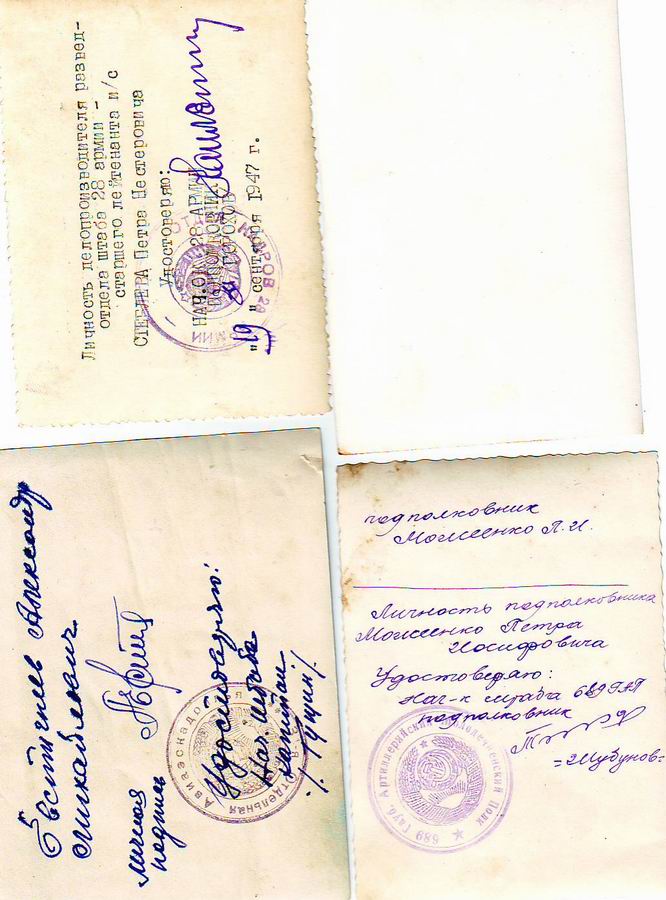 Личность делопроизводителя развед-
отдела штаба 28 армии -
старшего лейтенанта и/с
СТЕБЛЕВА Петра Нестеровича
Удостоверяю:
НАЧ.ОКС 28 АРМИИ
ПОДПОЛКОВНИК
ГОРОХОВ
"19" сентября 1947 г.
ОТДЕЛ КАДРОВ 28 АРМИИ
Александр
Михайлович
личная
подпись
Удостоверяю:
Нач. Штаба
капитан
/Гущин/
Отдельная Авиаэскадрилья
подполковник
Моисеенко П.И.
Личность подполковника
Моисеенко Петра
Иосифовича
Удостоверяю:
Нач-к штаба 689 ГАП
подполковник
689 Гауб. Артиллерийский Полк